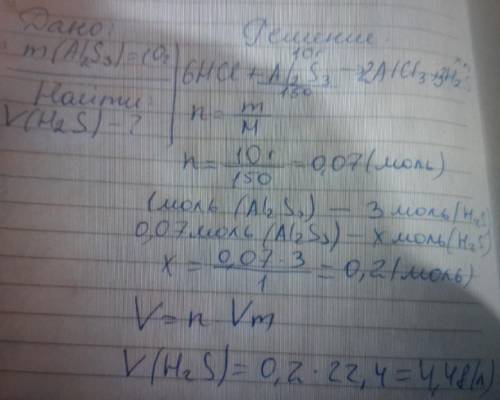 Дано:
m(Al₂S₃)=10г
Найти:
V(H₂S)-?
Решение:
10г
6HCl + Al₂S₃ - 2AlCl₃ + 3H₂S
150
n = m/M
n = 10г/150 = 0,07(моль)
1моль (Al₂S₃) - 3 моль(H₂S)
0,07моль (Al₂S₃) - x моль(H₂S)
x = 0,07·3/1 = 0,2(моль)
V = n · Vm
V(H₂S) = 0,2 · 22,4 = 4,48(л)